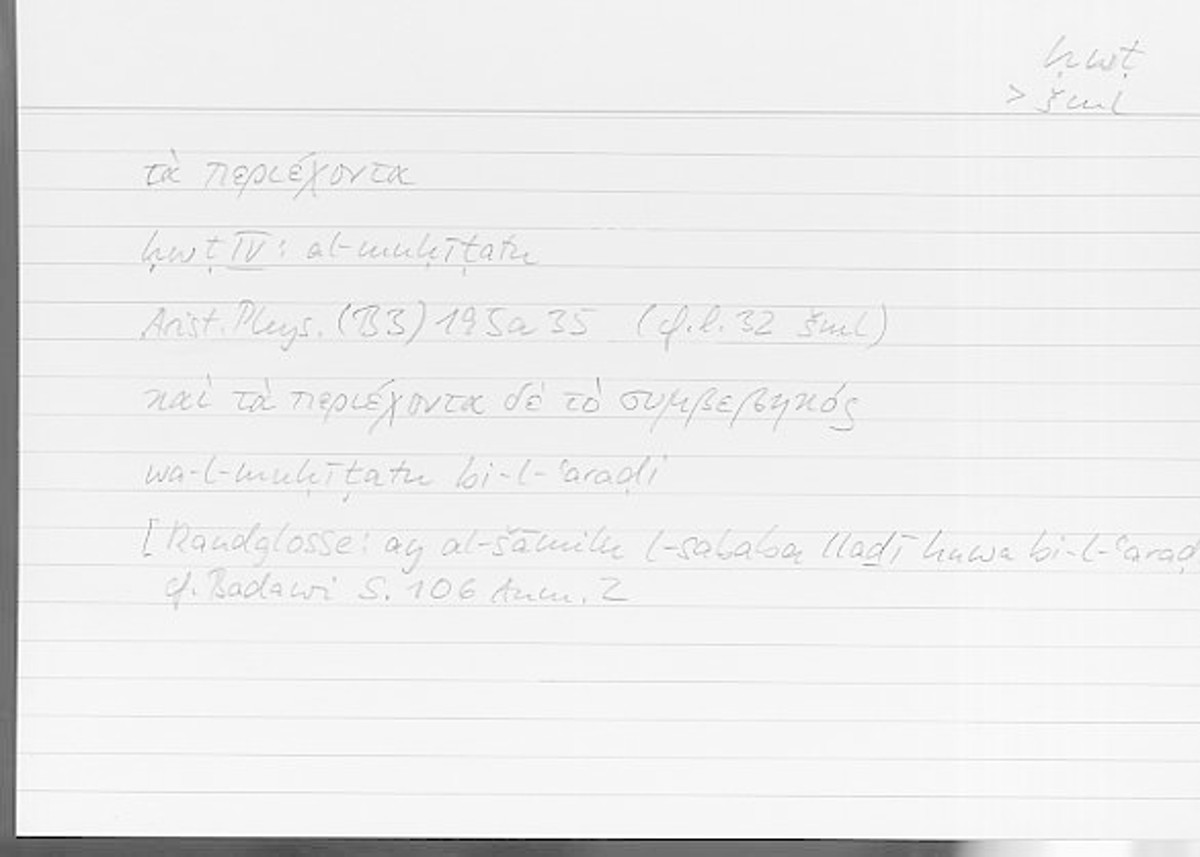 ḥwṭ
> šml
τὰ περιέχοντα
ḥwṭ IV: al-muḥīṭatu
Arist. Phys. (B3) 195a35 (cf. l. 32 šml)
καὶ τὰ περιέχοντα δὲ τὸ συμβεβηκός
wa-l-muḥīṭatu bi-l-ʿaraḍi
[Randglosse: ay al-šāmilu l-sababa lladī huwa bi-l-ʿaraḍ
cf. Badawi S. 106 Anm. 2